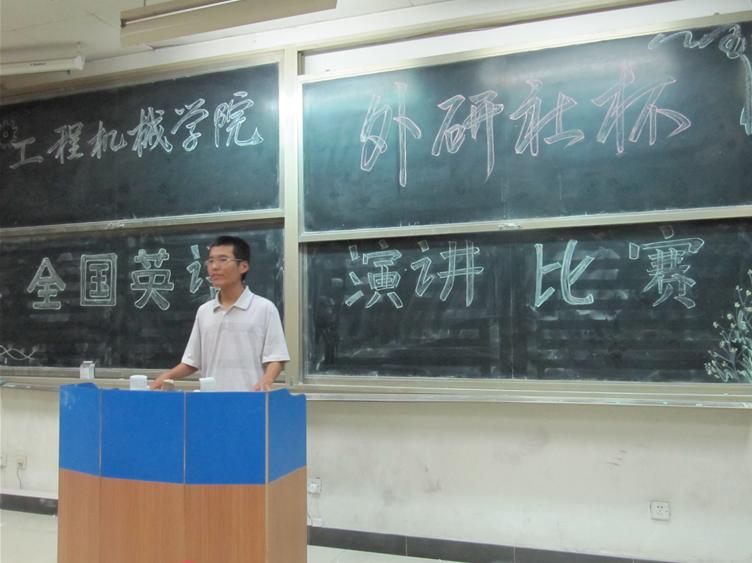 工程机械学院 外研社杯
全国英 演讲比赛